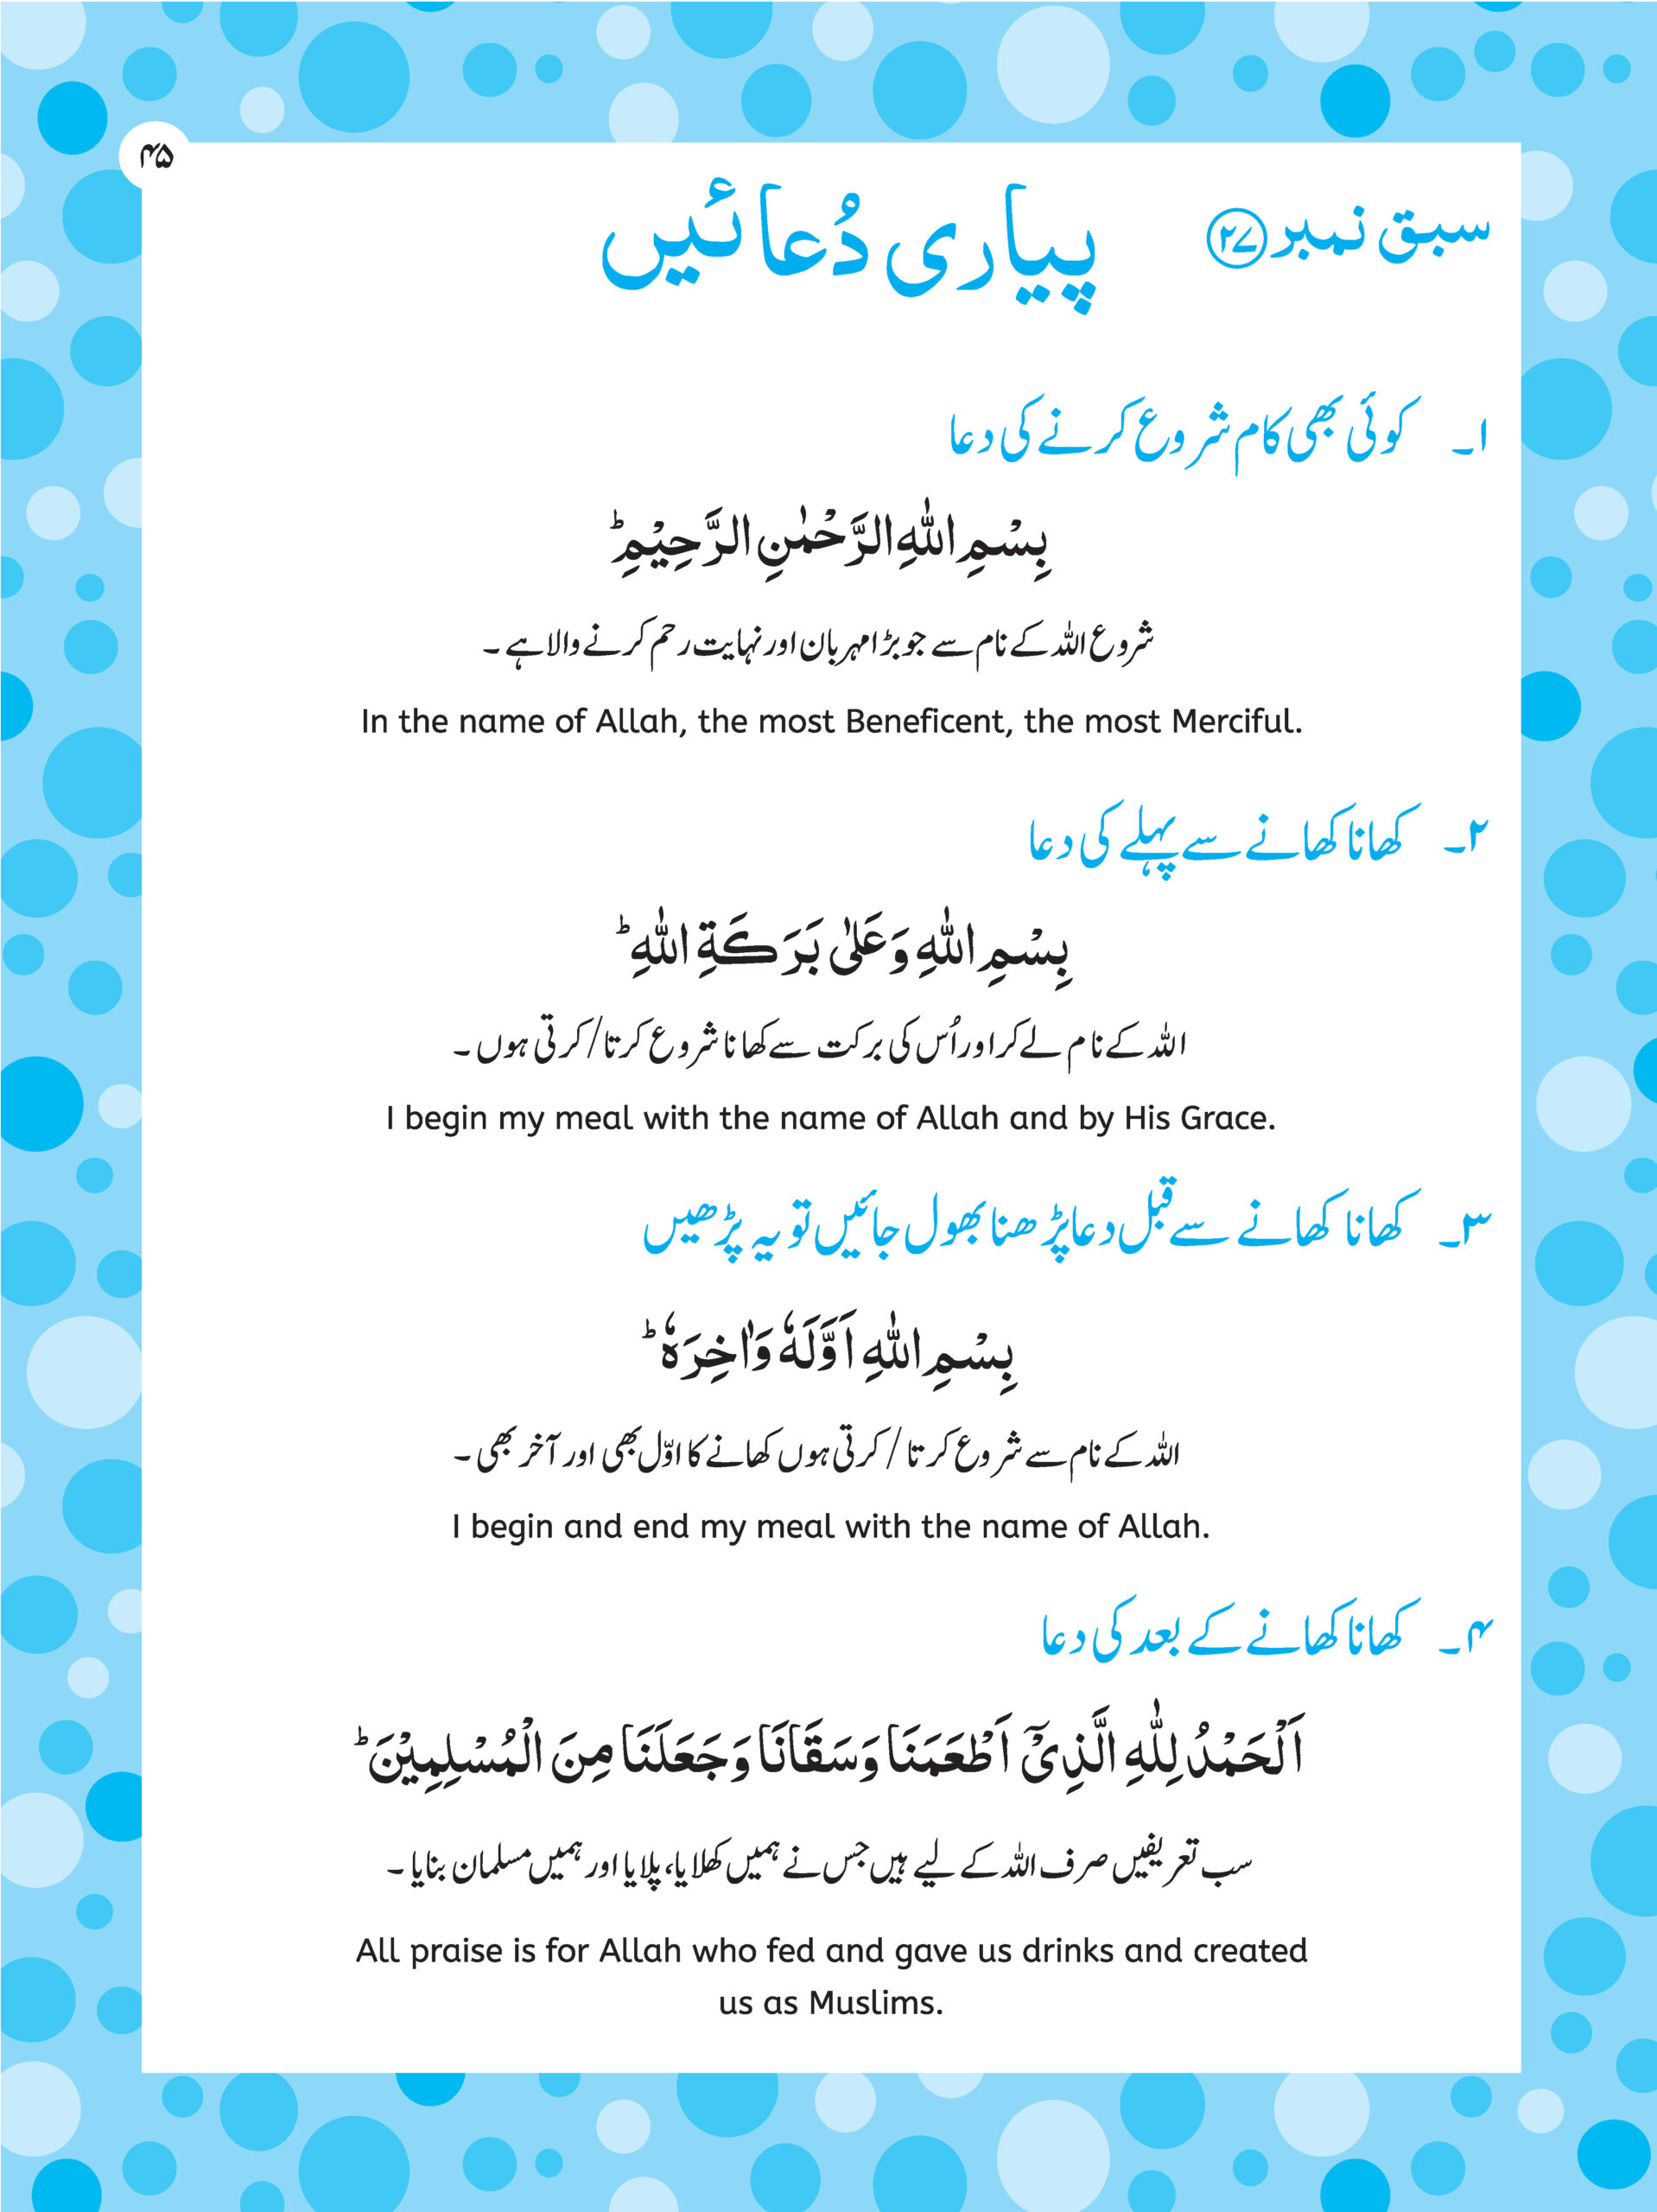 ۴۵
سبق نمبر ۲۷
پیاری دُعائیں
۱۔ کوئی بھی کام شروع کرنے کی دعا
بِسْمِ اللّٰهِ الرَّحْمٰنِ الرَّحِيْمِ ؕ
شروع اللہ کے نام سے جو بڑا مہربان اور نہایت رحم کرنے والا ہے ۔
In the name of Allah, the most Beneficent, the most Merciful.
۲۔ کھانا کھانے سے پہلے کی دعا
بِسْمِ اللّٰهِ وَعَلٰى بَرَكَةِ اللّٰهِ ؕ
اللہ کے نام لے کر اور اُس کی برکت سے کھانا شروع کرتا/کرتی ہوں ۔
I begin my meal with the name of Allah and by His Grace.
۳۔ کھانا کھانے سے قبل دعا پڑھنا بھول جائیں تو یہ پڑھیں
بِسْمِ اللّٰهِ اَوَّلَهٗ وَاٰخِرَهٗ ؕ
اللہ کے نام سے شروع کرتا / کرتی ہوں کھانے کا اوّل بھی اور آخر بھی ۔
I begin and end my meal with the name of Allah.
۴۔ کھانا کھانے کے بعد کی دعا
اَلْحَمْدُ لِلّٰهِ الَّذِىْٓ اَطْعَمَنَا وَسَقَانَا وَجَعَلَنَا مِنَ الْمُسْلِمِيْنَ ؕ
سب تعریفیں صرف اللہ کے لیے ہیں جس نے ہمیں کھلایا، پلایا اور ہمیں مسلمان بنایا ۔
All praise is for Allah who fed and gave us drinks and created
us as Muslims.